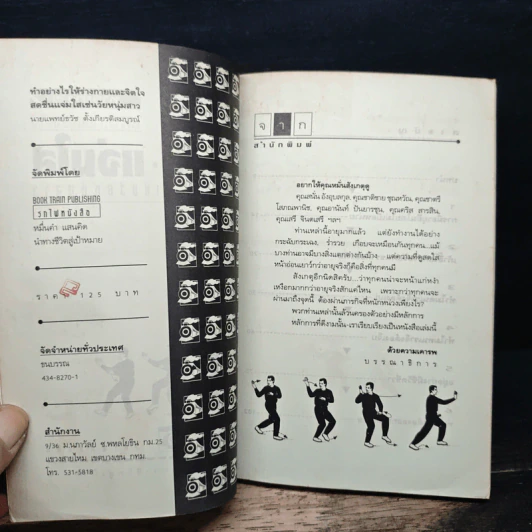 ทำอย่างไรให้ร่างกายและจิตใจ
สดชื่นแจ่มใสเช่นวัยหนุ่มสาว
นายแพทย์ธวัช ตั้งเกียรติสมบูรณ์
จัดพิมพ์โดย
BOOK TRAIN PUBLISHING
รถไฟหนังสือ
หมื่นคำ แสนคิด
นำทางชีวิตสู่เป้าหมาย
ราคา 125 บาท
จัดจำหน่ายทั่วประเทศ
ธนบรรณ
434-8270-1
สำนักงาน
9/36 ม.นภาวัลย์ ซ.พหลโยธิน กม.25
แขวงสายไหม เขตบางเขน กทม
โทร. 531-5818
จาก
สำนักพิมพ์
อยากให้คุณหมั่นสังเกตดู
คุณสนั่น อังอุบลกุล, คุณชาติชาย ชุณหวัณ, คุณชาตรี
โสภณพานิช, คุณอานันท์ ปันยารชุน, คุณดุริส สารสิน,
คุณเสรี จินตเสรี ฯลฯ
ท่านเหล่านี้อายุมากแล้ว แต่ยังทำงานได้อย่าง
กระฉับกระเฉง, ร่ำรวย เกือบจะเหมือนกันทุกคน...แม้
บางท่านอาจมีบางสิ่งแตกต่างกันบ้าง แต่ความที่ดูสดใส
หน้าอ่อนเยาว์กว่าอายุจริงก็คือสิ่งที่ทุกคนมี
สังเกตอีกนิดสิครับ...ว่าทุกคนน่าจะหน้าแก่หง่า
เหงือกมากกว่าอายุจริงสักแค่ไหน เพราะกว่าทุกคนจะ
ผ่านมาถึงจุดนี้ ต้องผ่านภารกิจที่หนักหน่วงเพียงไร?
พวกท่านเหล่านั้นล้วนครองตัวอย่างมีหลักการ
หลักการที่ดีงามนั้น-เราเรียบเรียงเป็นหนังสือเล่มนี้
ด้วยความเคารพ
บรรณาธิการ